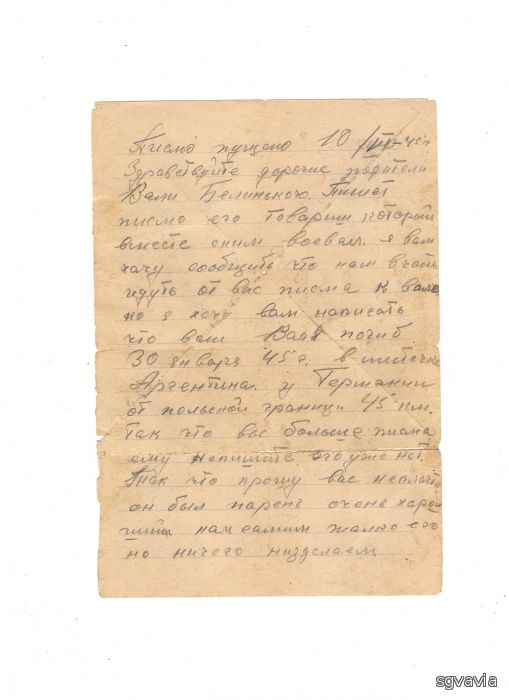 Писмо пущено 10/III-45 г.
Здравствуйте дорогие родители
Вали Белинького. Пишет
писмо его товарищ которой
вместе сним воевал. я вам
хочу сообщить что нам в часть
идуть от вас писма к Вале
но я хочу вам написать
что ваш Валя погиб
30 января 45 г. в местечке
Аргентина у Германии
от польской границы 45 км.
Так что вы больше писма
ему непишите его уже нет.
Так что прошу вас неплачте
он был парень очень харо
ший нам самим жалко его
но ничего низделаем
sgvavia